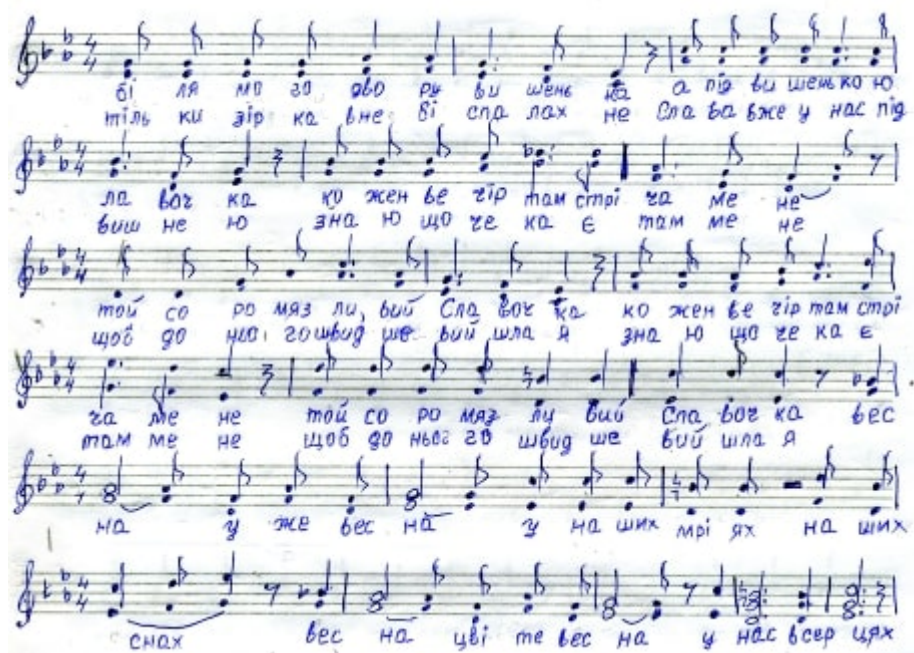 бі ля мо го дво ру ви шень ка а під ви шень ко ю
тіль ки зір ка вне бі спа лах не Сла ва вже у нас під
ла воч ка ко жен ве чір там стрі ча ме не
виш не ю зна ю що че ка є там ме не
той со ро мяз ли вий Сла воч ка ко жен ве чір там стрі
щоб до ньо го швид ше вий шла я зна ю що че ка є
ча ме не той со ро мяз ли вий Сла воч ка вес
там ме не щоб до ньо го швид ше вий шла я
на у же вес на у на ших мрі ях на ших
снах вес на цві те вес на у нас всер цях